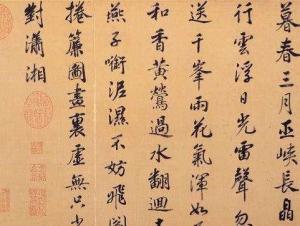 暮春三月巫峽長晶
行雲浮日光雷聲忽
送千峯雨花氣渾如
和香黃鶯過水翻迴去
燕子啣泥濕不妨飛閣
捲簾圖畫裏虛無只少
對瀟湘